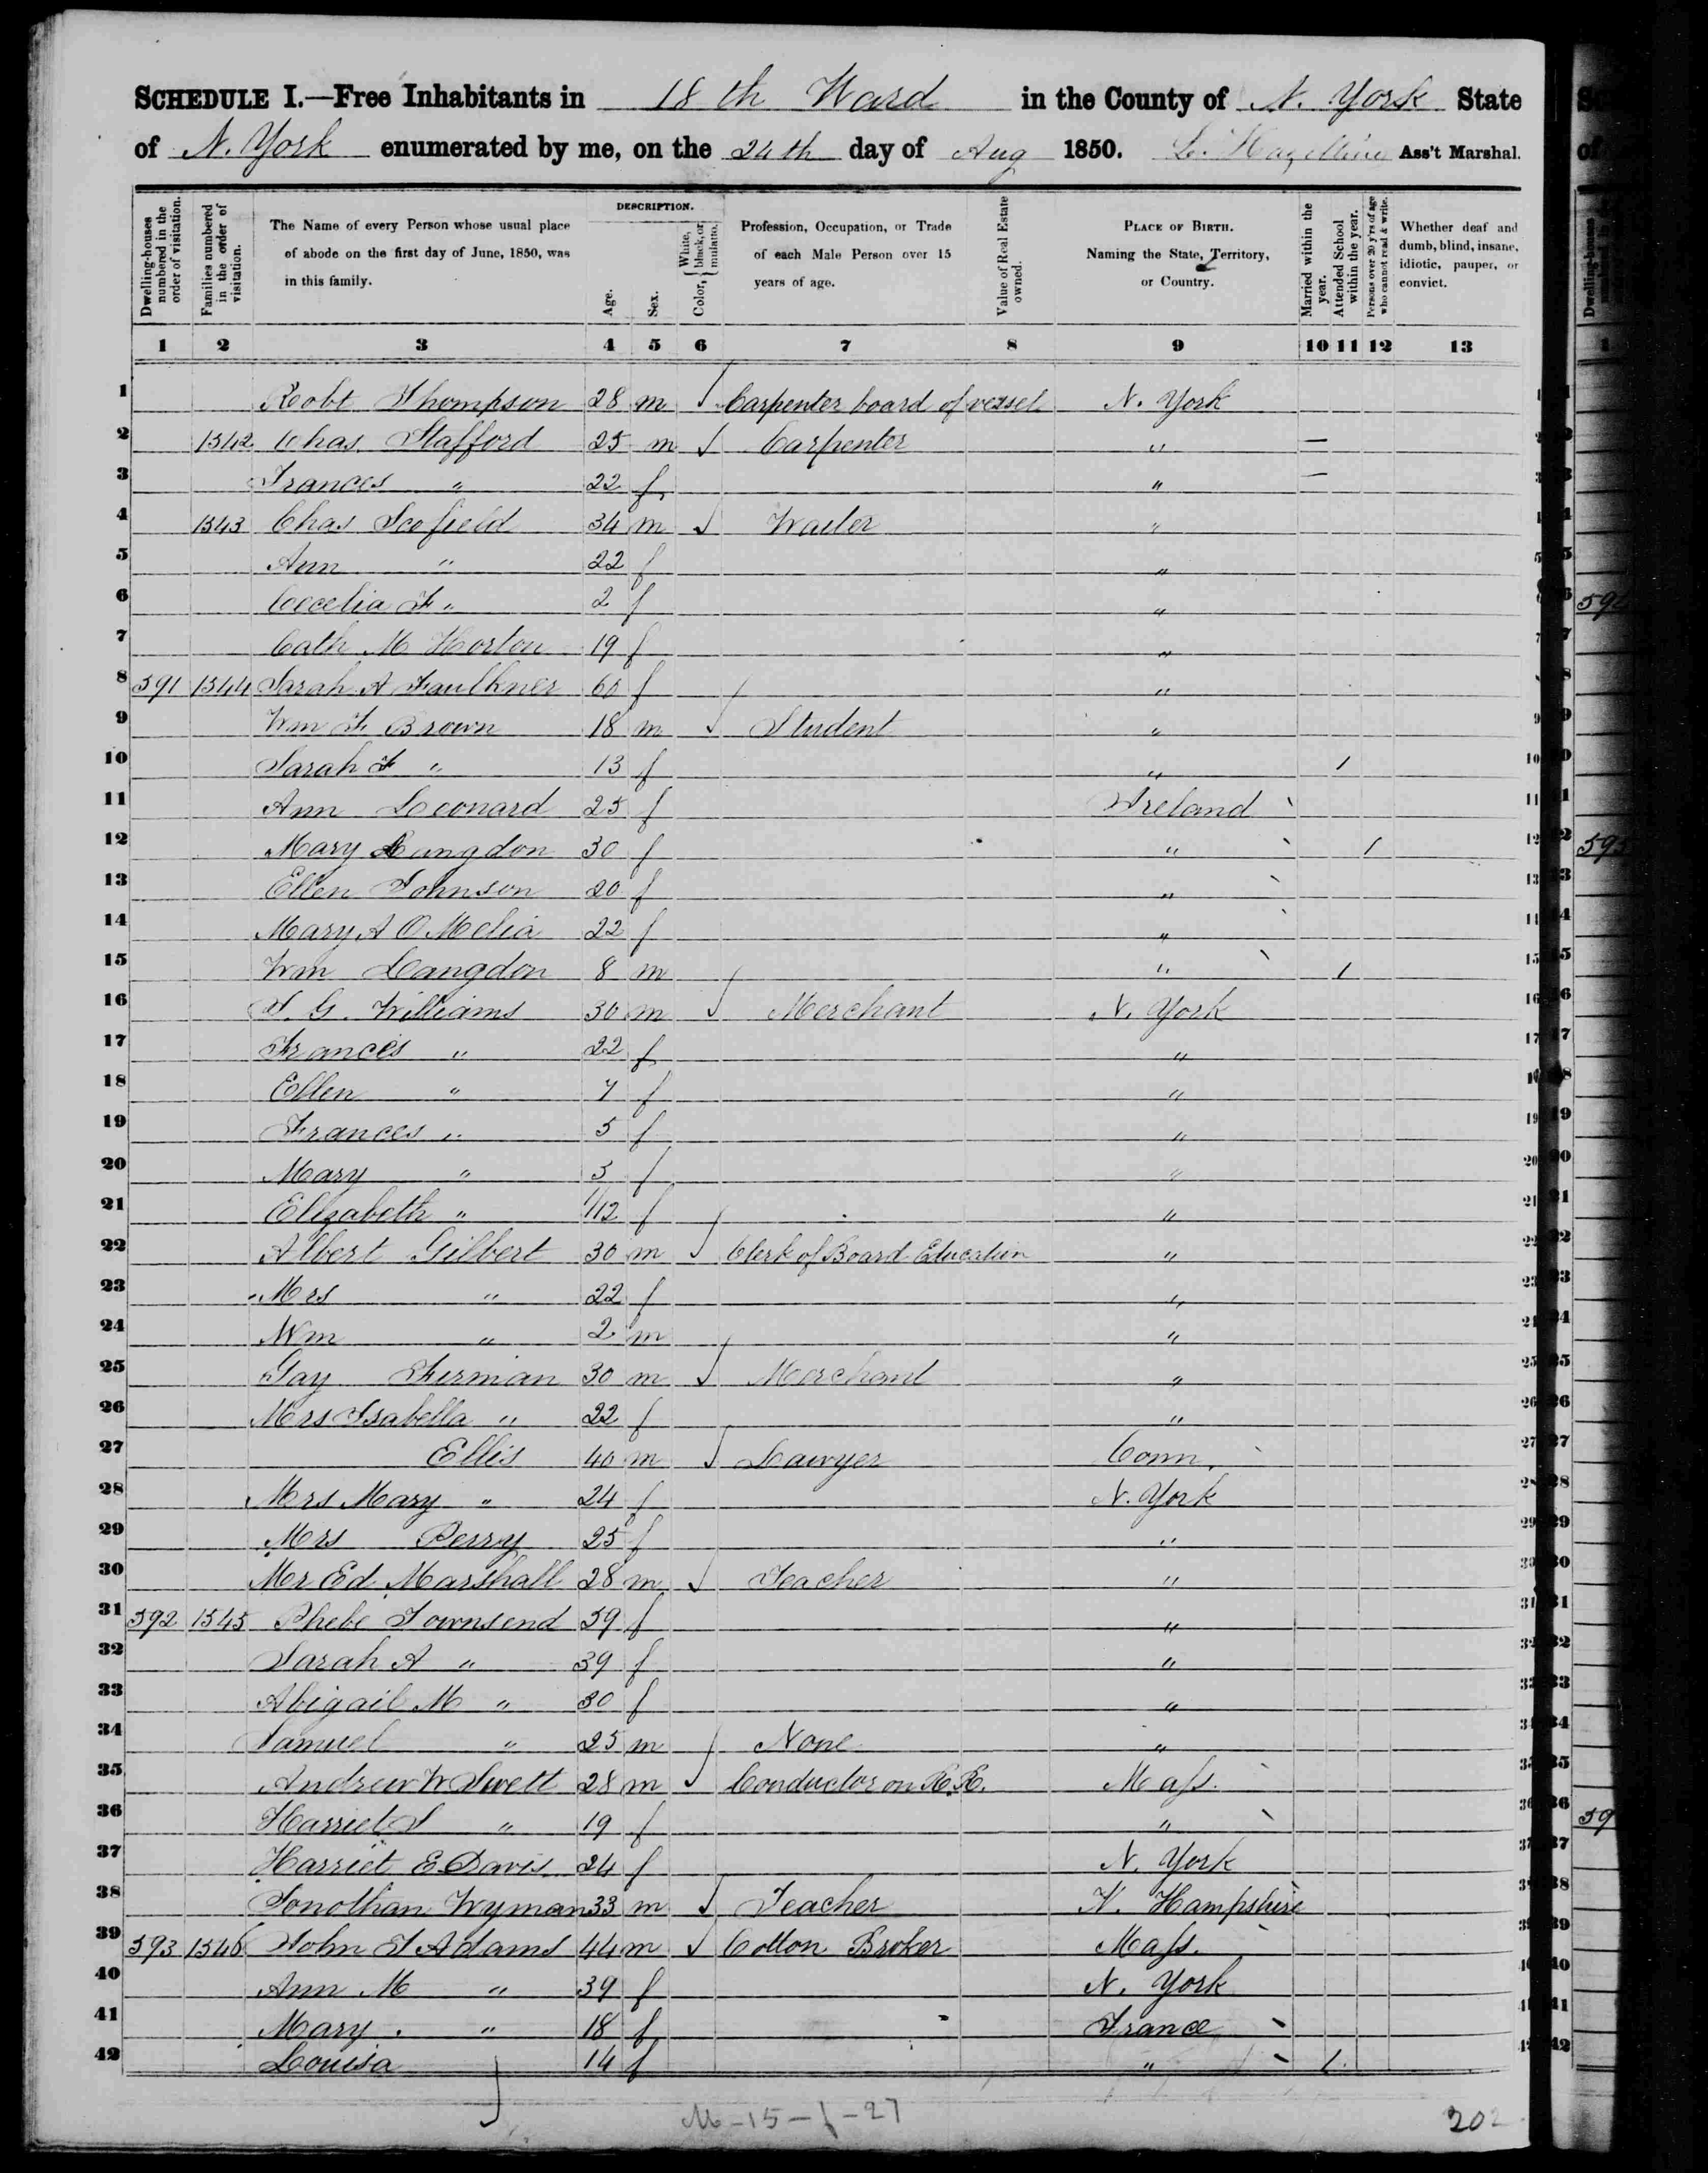 SCHEDULE I.—Free Inhabitants in 18th Ward in the County of N. York State
of N. York enumerated by me, on the 24th day of Aug 1850. Ass't Marshal.
Dwelling-houses numbered in the order of visitation.
Families numbered in the order of visitation.
The Name of every Person whose usual place of abode on the first day of June, 1850, was in this family.
DESCRIPTION.
Age.
Sex.
Color, { White, black, or mulatto.
Profession, Occupation, or Trade of each Male Person over 15 years of age.
Value of Real Estate owned.
PLACE OF BIRTH. Naming the State, Territory, or Country.
Married within the year.
Attended School within the year.
Persons over 20 y'rs of age who cannot read & write.
Whether deaf and dumb, blind, insane, idiotic, pauper, or convict.
1 2 3 4 5 6 7 8 9 10 11 12 13
1 Robt Thompson 28 m Carpenter board of vessel N. York
2 1542 Chas. Stafford 25 m Carpenter " —
3 Frances " 22 f " —
4 1543 Chas Scofield 34 m Waiter "
5 Ann " 22 f "
6 Cecelia F " 2 f "
7 Cath M Horton 19 f "
8 591 1544 Sarah A Faulkner 60 f "
9 Wm F Brown 18 m Student "
10 Sarah F " 13 f " 1
11 Ann Leonard 25 f Ireland
12 Mary Langdon 30 f " 1
13 Ellen Johnson 20 f "
14 Mary A O Melia 22 f "
15 Wm Langdon 8 m " 1
16 G. Williams 30 m Merchant N. York
17 Frances " 22 f "
18 Ellen " 7 f "
19 Frances " 5 f "
20 Mary " 3 f "
21 Elizabeth " 1/12 f "
22 Albert Gilbert 30 m Clerk of Board Education "
23 Mrs " 22 f "
24 Wm " 2 m "
25 Gay Furman 30 m Merchant "
26 Mrs Isabella " 22 f "
27 Ellis 40 m Lawyer Conn.
28 Mrs Mary " 24 f N. York
29 Mrs Perry 25 f "
30 Mr Ed Marshall 28 m Teacher "
31 592 1545 Phebe Townsend 59 f "
32 Sarah A " 39 f "
33 Abigail M " 30 f "
34 Samuel " 25 m None "
35 Andrew W Swett 28 m Conductor on R.R. Mass.
36 Harriet S " 19 f "
37 Harriet E Davis 24 f N. York
38 Jonothan Wyman 33 m Teacher N. Hampshire
39 593 1546 John T Adams 44 m Cotton Broker Mass.
40 Ann M " 39 f N. York
41 Mary " 18 f France
42 Louisa 14 f " 1
M-15-f-27